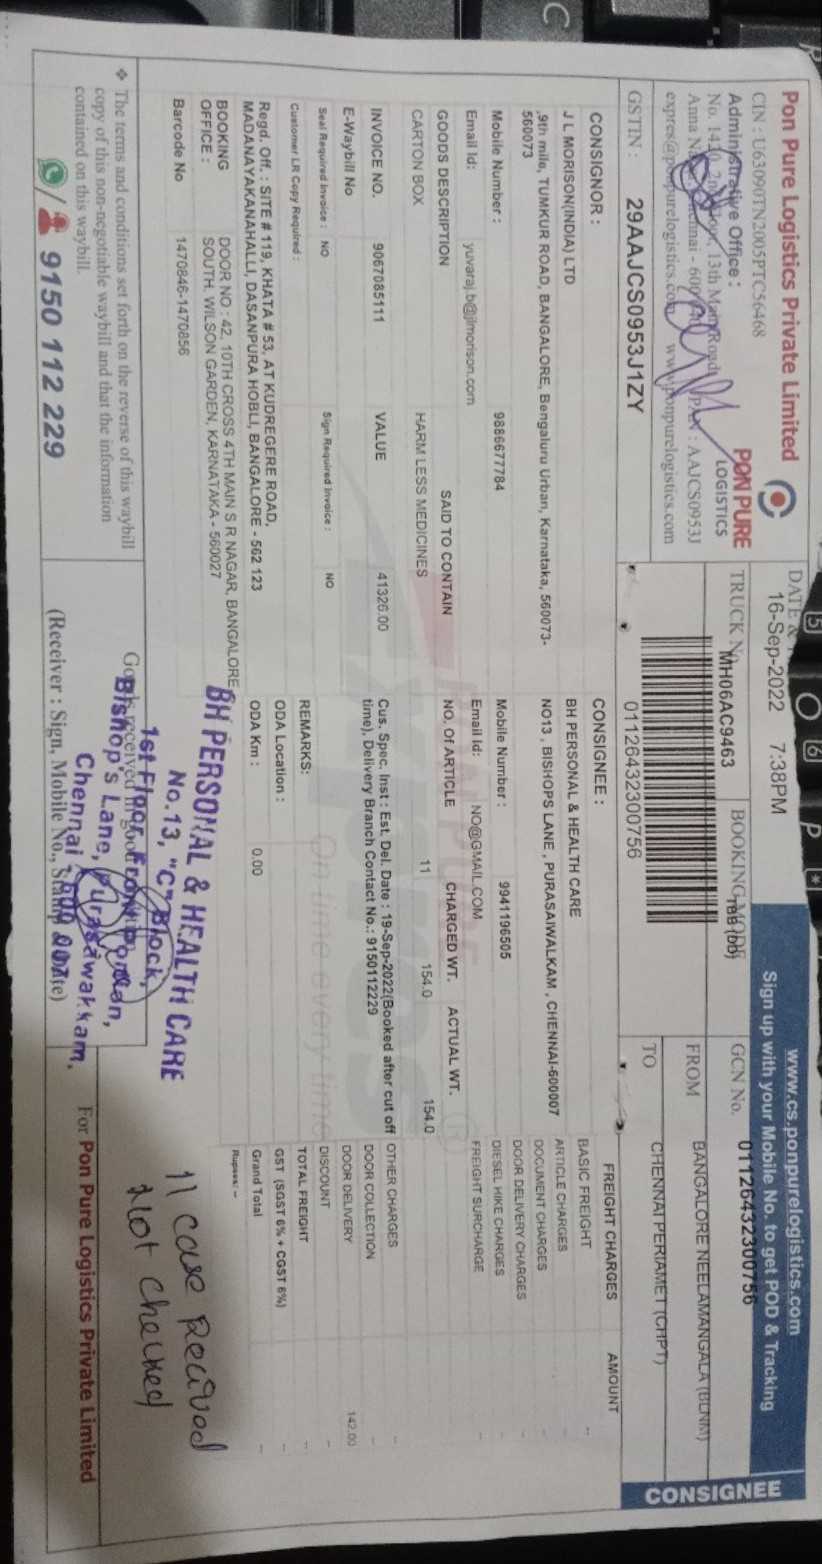 Pon Pure Logistics Private Limited
CIN : U63090TN2005PTC56468
Administrative Office :
PON PURE
LOGISTICS
PAN : AAJCS0953J
www.ponpurelogistics.com
GSTIN : 29AAJCS0953J1ZY
DATE &
16-Sep-2022 7:38PM
TRUCK No.
MH06AC9463
BOOKING MODE
TBB (bb)
01126432300756
www.cs.ponpurelogistics.com
Sign up with your Mobile No. to get POD & Tracking
GCN No. 01126432300756
FROM BANGALORE NEELAMANGALA (BLNM)
TO CHENNAI PERIAMET (CHPT)
CONSIGNEE
CONSIGNOR :
J L MORISON(INDIA) LTD
,9th mile, TUMKUR ROAD, BANGALORE, Bengaluru Urban, Karnataka, 560073-
560073
Mobile Number : 9886677784
Email Id: yuvaraj.b@jlmorison.com
CONSIGNEE :
BH PERSONAL & HEALTH CARE
NO13 , BISHOPS LANE , PURASAIWALKAM , CHENNAI-600007
Mobile Number : 9941196505
Email Id: NO@GMAIL.COM
GOODS DESCRIPTION SAID TO CONTAIN NO. Of ARTICLE CHARGED WT. ACTUAL WT.
CARTON BOX HARM LESS MEDICINES 11 154.0 154.0
INVOICE NO. 9067085111 VALUE 41326.00
E-Waybill No
Cus. Spec. Inst : Est. Del. Date : 19-Sep-2022(Booked after cut off
time), Delivery Branch Contact No.: 9150112229
Seal Required Invoice : NO Sign Required Invoice : NO
Customer LR Copy Required :
REMARKS:
ODA Location :
ODA Km : 0.00
Regd. Off. : SITE # 119, KHATA # 53, AT KUDREGERE ROAD,
MADANAYAKANAHALLI, DASANPURA HOBLI, BANGALORE - 562 123
BOOKING OFFICE :
DOOR NO : 42, 10TH CROSS 4TH MAIN S R NAGAR, BANGALORE
SOUTH, WILSON GARDEN, KARNATAKA - 560027
Barcode No 1470846-1470856
FREIGHT CHARGES AMOUNT
BASIC FREIGHT --
ARTICLE CHARGES -
DOCUMENT CHARGES -
DOOR DELIVERY CHARGES -
DIESEL HIKE CHARGES -
FREIGHT SURCHARGE -
OTHER CHARGES -
DOOR COLLECTION -
DOOR DELIVERY 142.00
DISCOUNT -
TOTAL FREIGHT -
GST (SGST 6% + CGST 6%) -
Grand Total --
Rupees: --
On time every time
❖ The terms and conditions set forth on the reverse of this waybill
copy of this non-negotiable waybill and that the information
contained on this waybill.
9150 112 229
BH PERSONAL & HEALTH CARE
No.13, "C" Block,
1st Floor, Front Portion,
Bishop's Lane, Purasawakkam,
Chennai - 600 007.
Goods received in good
(Receiver : Sign, Mobile No., Stamp & Date)
11 case Recived
Not checked
For Pon Pure Logistics Private Limited